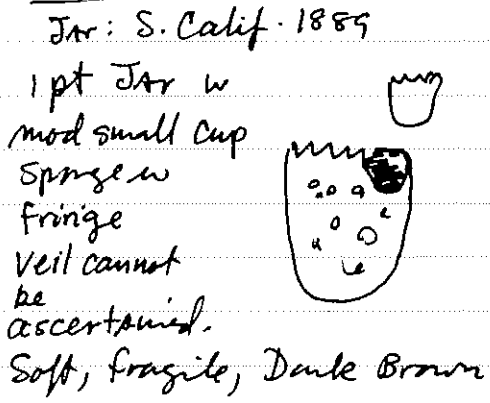 Jar: S. Calif. 1889
1 pt Jar w
mod small cup
sponge w
fringe
Veil cannot
be
ascertained.
Soft, fragile, Dark Brown